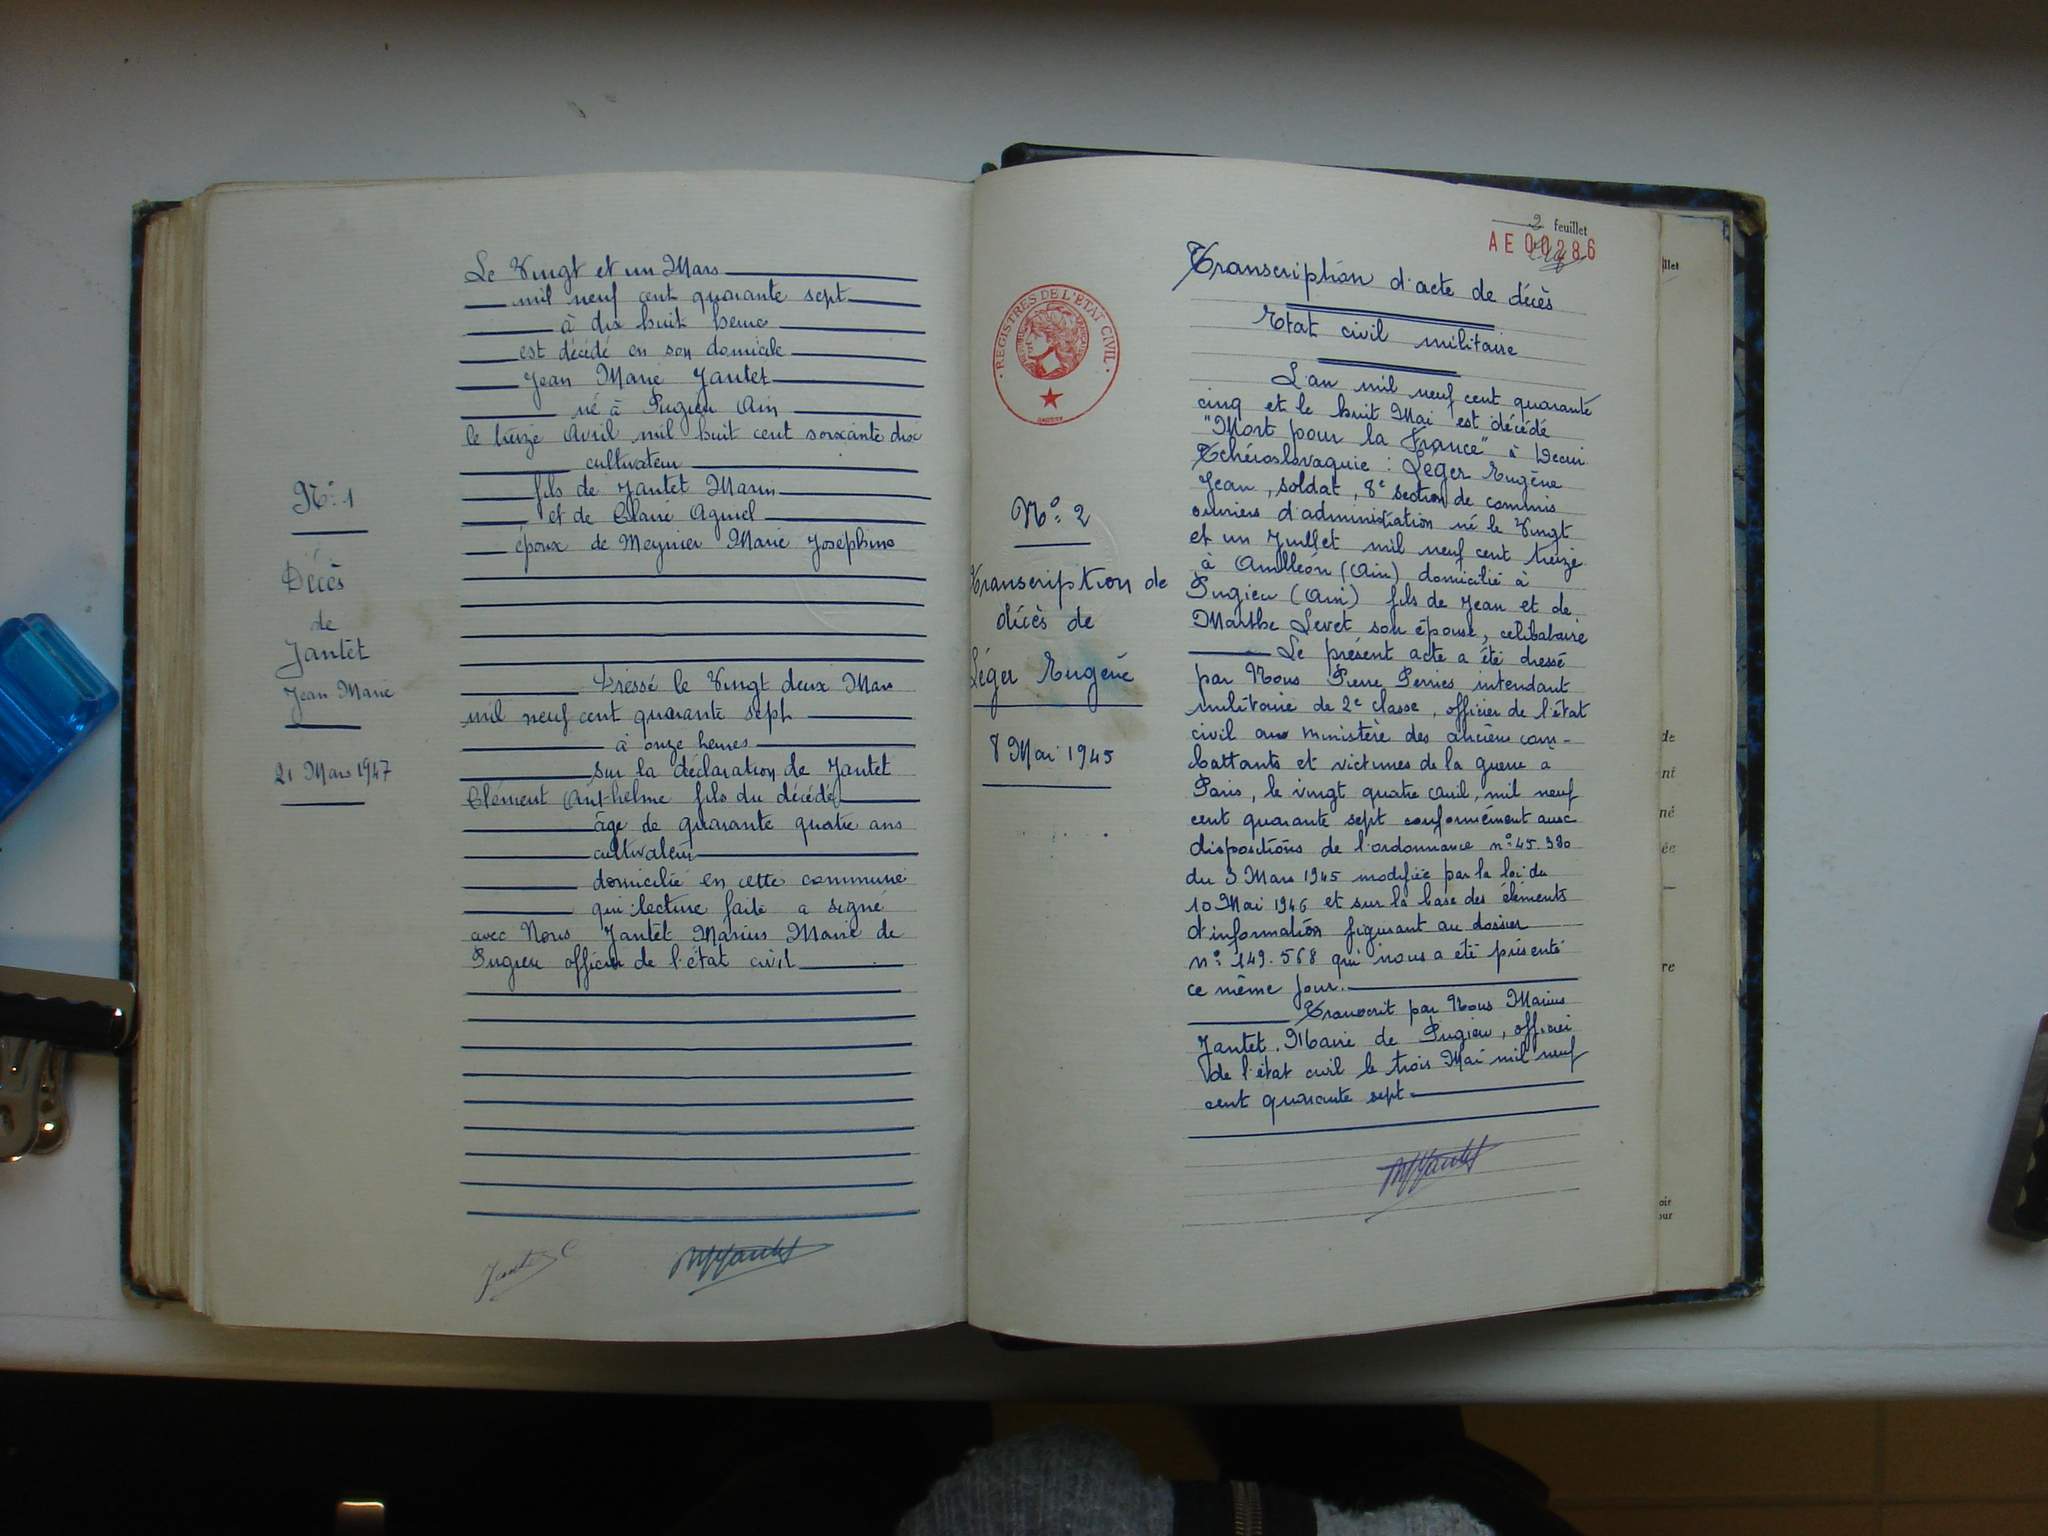 Nº 1
Décès
de
Jantet
Jean Marie
21 Mars 1947
Le Vingt et un Mars
mil neuf cent quarante sept
à dix huit heures
est décédé en son domicile
Jean Marie Jantet
né à Pugieu Ain
le treize Avril mil huit cent soixante dix
cultivateur
fils de Jantet Marin
et de Claire
époux de Meynier Marie Josephine
Dressé le Vingt deux Mars
mil neuf cent quarante sept
à onze heures
sur la déclaration de Jantet
Clément Anthelme fils du décédé
âge de quarante quatre ans
cultivateur
domicilié en cette commune
qui lecture faite a signé
avec Nous Jantet Marius Maire de
Pugieu officier de l'état civil
2 feuillet
AE 00286
REGISTRES DE L'ÉTAT CIVIL
Nº 2
Transcription de
décès de
Léger Eugène
8 Mai 1945
Transcription d'acte de décès
Etat civil militaire
L'an mil neuf cent quarante
cinq et le huit Mai est décédé
"Mort pour la France" à
Tchécoslovaquie : Léger Eugène
Jean, soldat, 8e section de commis
ouvriers d'administration né le Vingt
et un Juillet mil neuf cent treize
à Ambléon (Ain) domicilié à
Pugieu (Ain) fils de Jean et de
Marthe Levet son épouse, celibataire
Le présent acte a été dressé
par Nous Pierre Perries intendant
militaire de 2e classe, officier de l'état
civil au ministère des anciens com-
battants et victimes de la guerre a
Paris, le vingt quatre avril, mil neuf
cent quarante sept conformément aux
dispositions de l'ordonnance nº 45.380
du 3 Mars 1945 modifiée par la loi du
10 Mai 1946 et sur la base des éléments
d'information figurant au dossier
nº 149.568 qui nous a été présenté
ce même jour.
Transcrit par Nous Marius
Jantet. Maire de Pugieu, officier
de l'état civil le trois Mai mil neuf
cent quarante sept
llet
de
nt
né
ée
re
oir
our